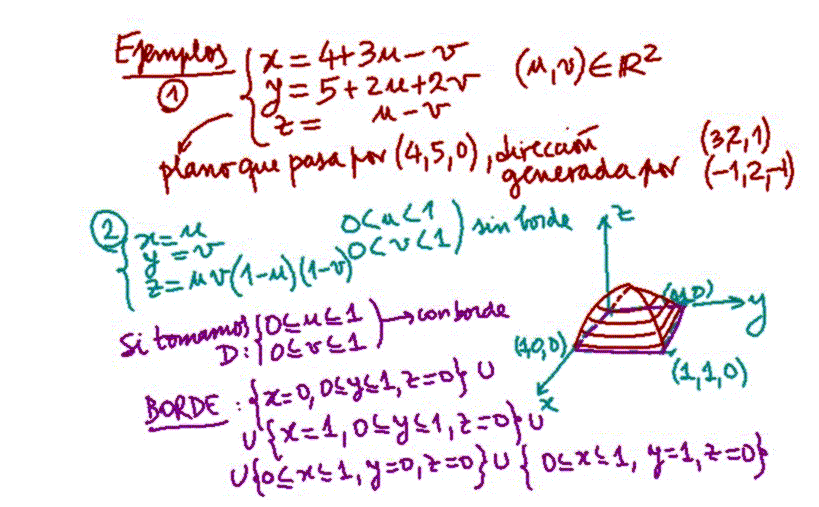 Ejemplos
① { x = 4+3u-v
y = 5+2u+2v (u,v)∈ℝ²
z = u-v
plano que pasa por (4,5,0), dirección generada por (3,2,1) (-1,2,-1)
② { x=u
y=v
z=uv(1-u)(1-v)
0<u<1
0<v<1 ) sin borde
Si tomamos D: { 0≤u≤1
0≤v≤1 ) → con borde
BORDE : {x=0, 0≤y≤1, z=0} ∪
∪ {x=1, 0≤y≤1, z=0} ∪
∪ {0≤x≤1, y=0, z=0} ∪ { 0≤x≤1, y=1, z=0}
z
y
(1,0,0)
(1,1,0)
x